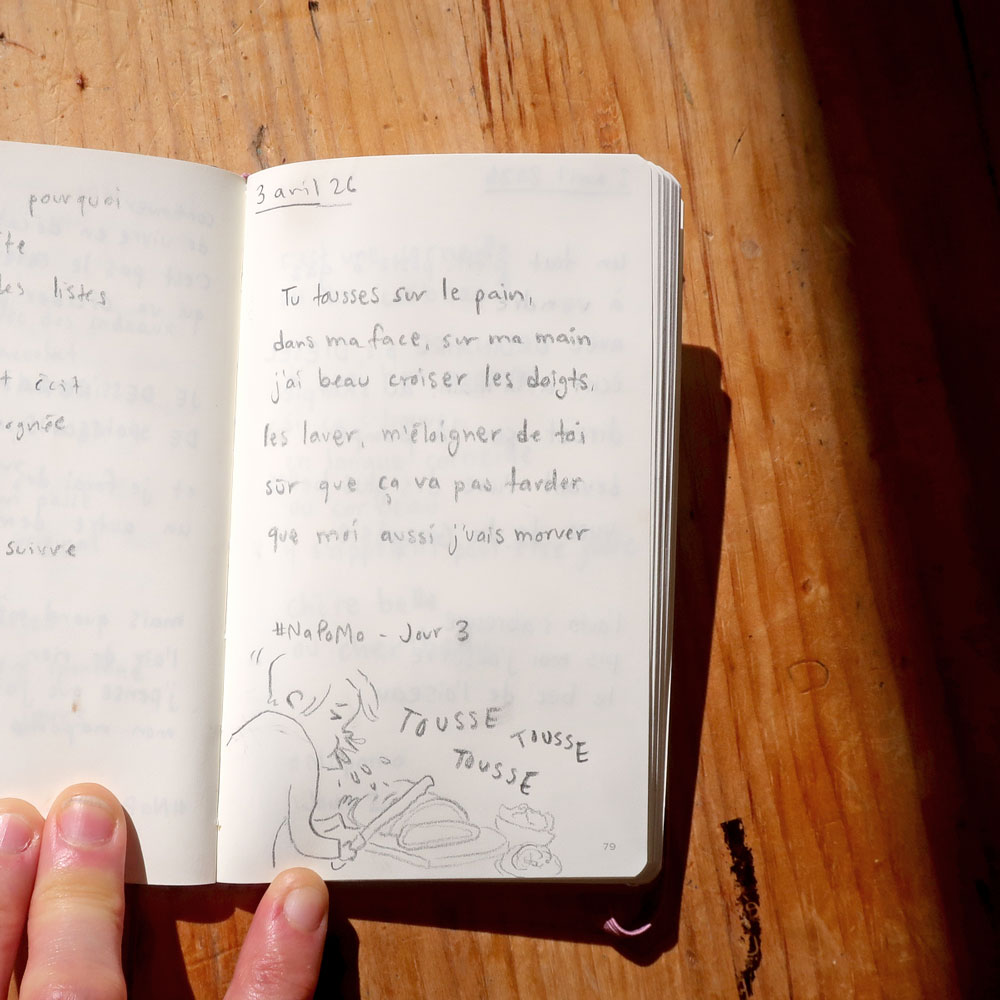 pourquoi
des listes
écrit
suivre
3 avril 26
Tu tousses sur le pain,
dans ma face, sur ma main
j'ai beau croiser les doigts,
les laver, m'éloigner de toi
sûr que ça va pas tarder
que moi aussi j'vais morver
#NaPoMo - Jour 3
TOUSSE
TOUSSE
TOUSSE
79